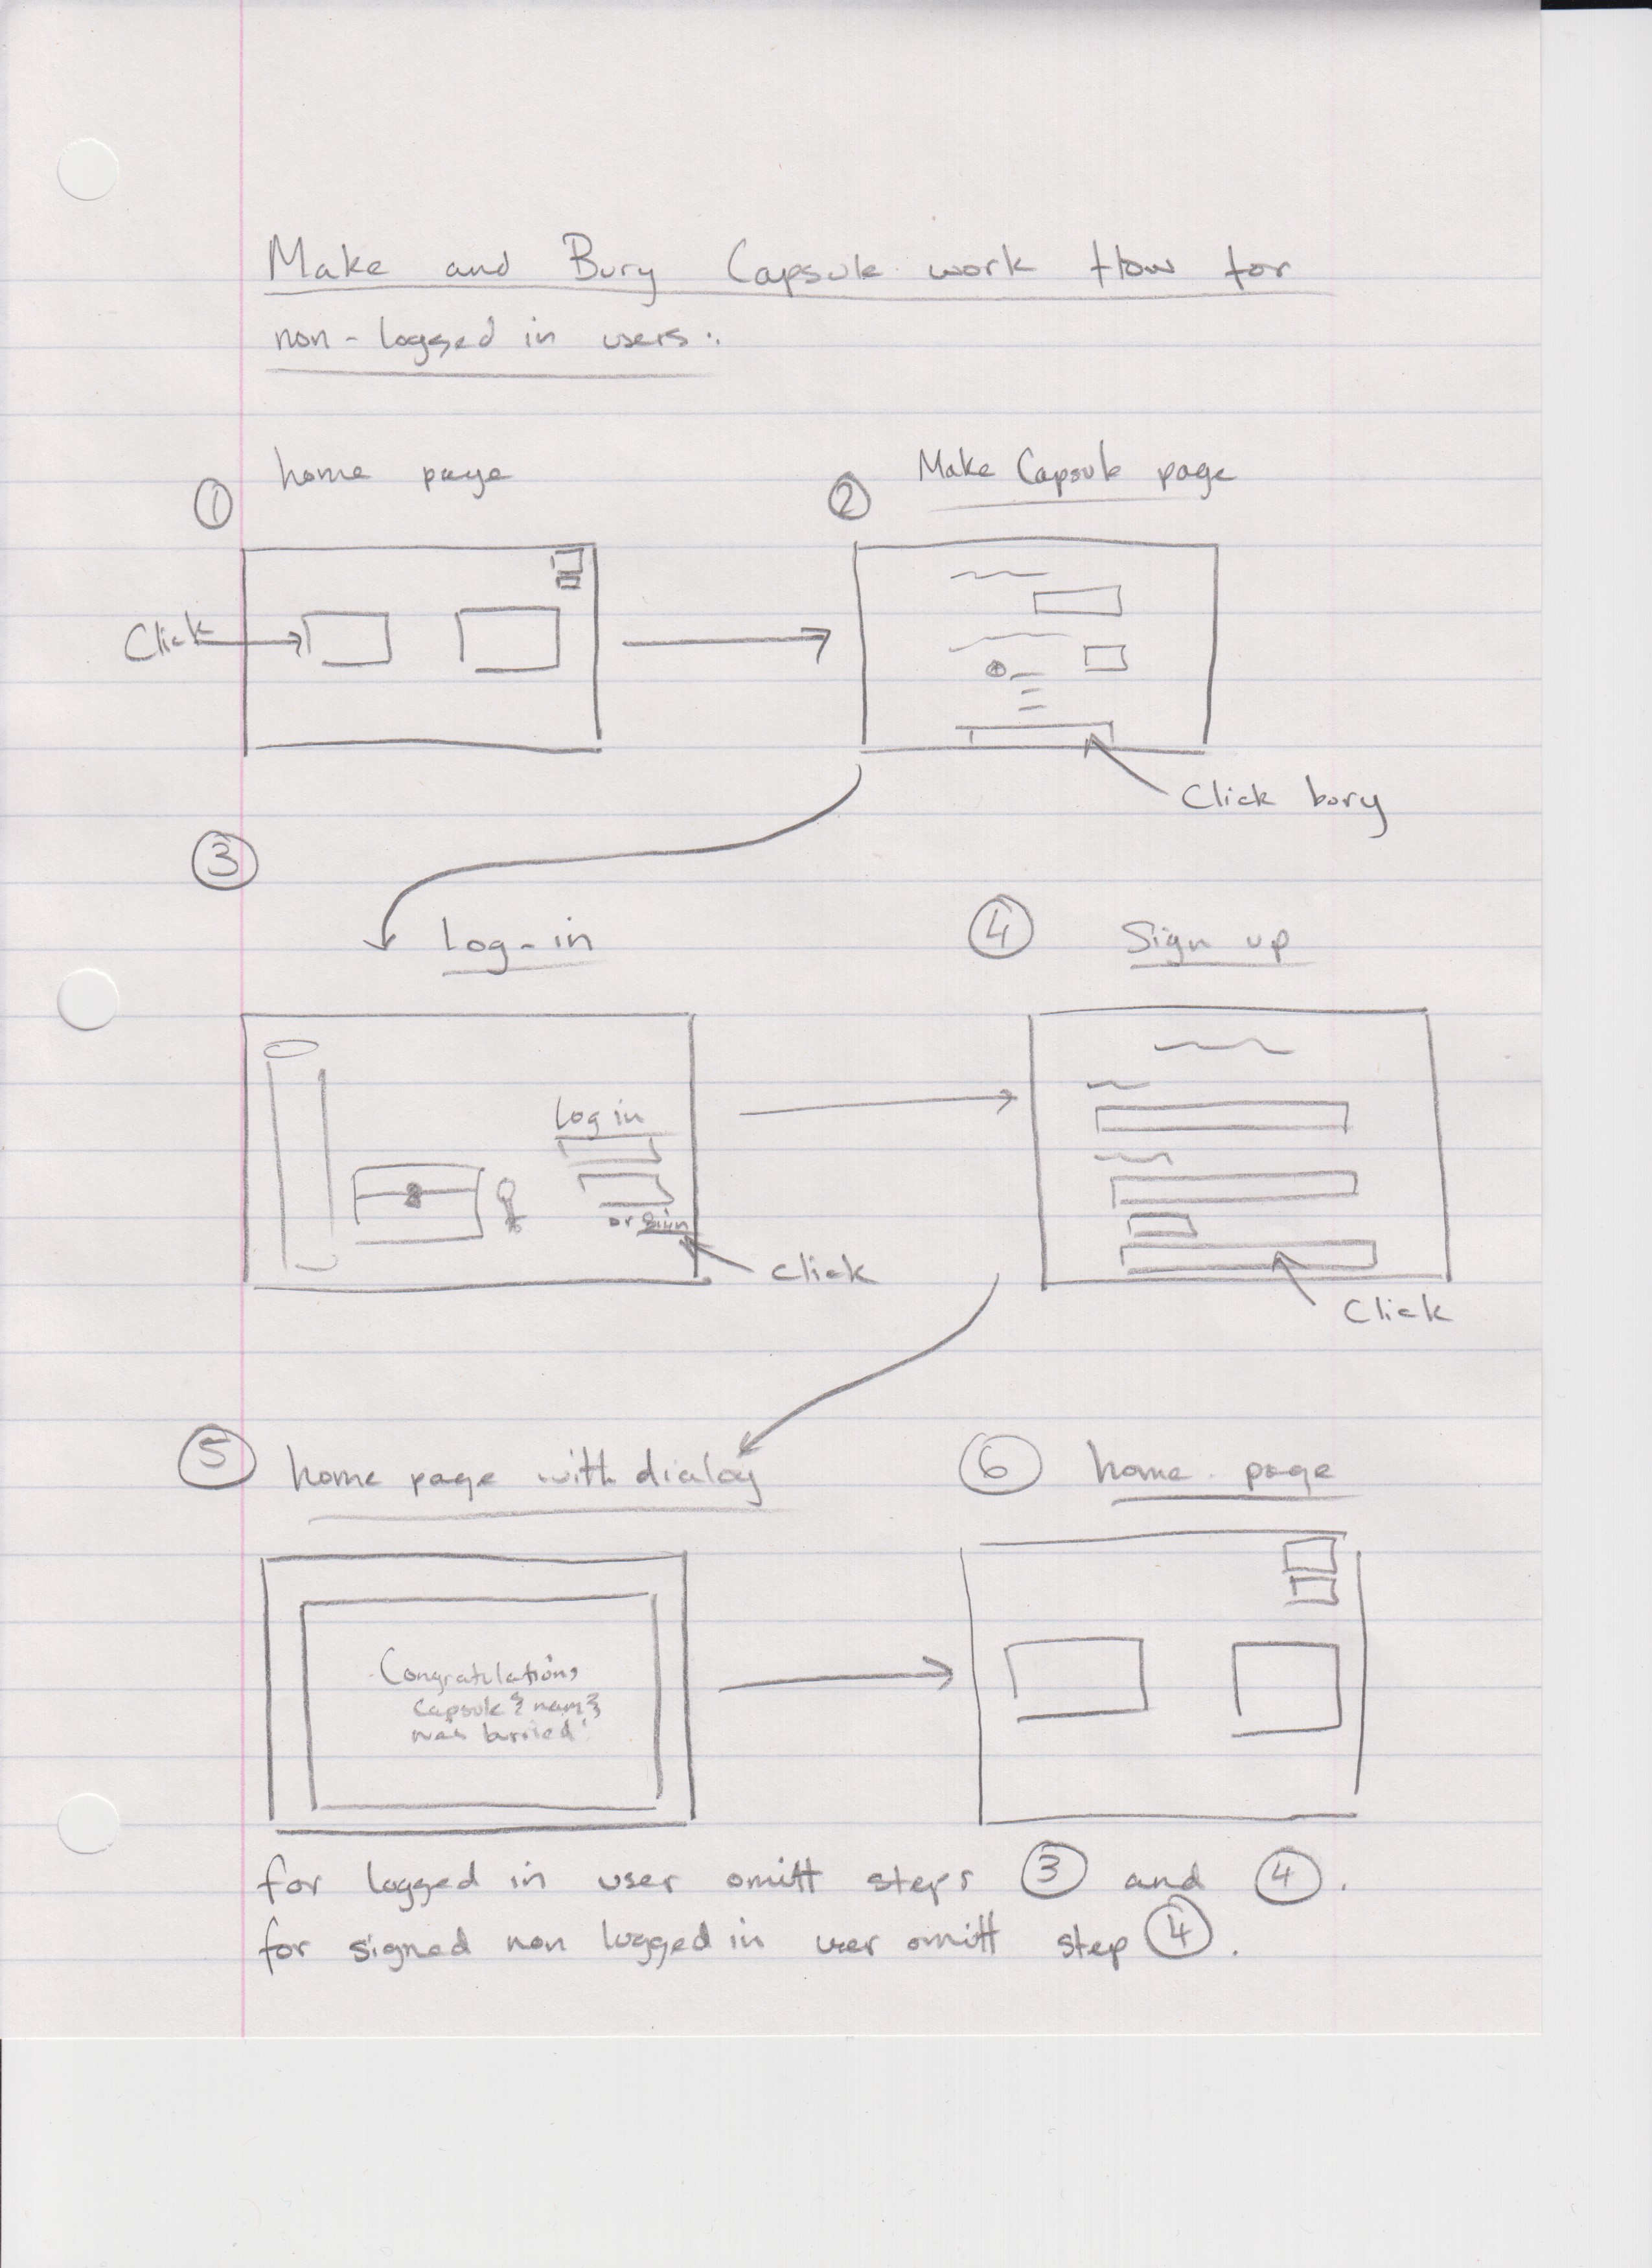 Make and Bury Capsule work flow for
non-logged in users:
① home page
② Make Capsule page
Click
Click bury
③
Log-in
④ Sign up
Log in
or sign
click
Click
⑤ home page with dialog
⑥ home page
Congratulations
Capsule {nam}
was burried!
for logged in user omitt steps ③ and ④.
for signed non logged in user omitt step ④.